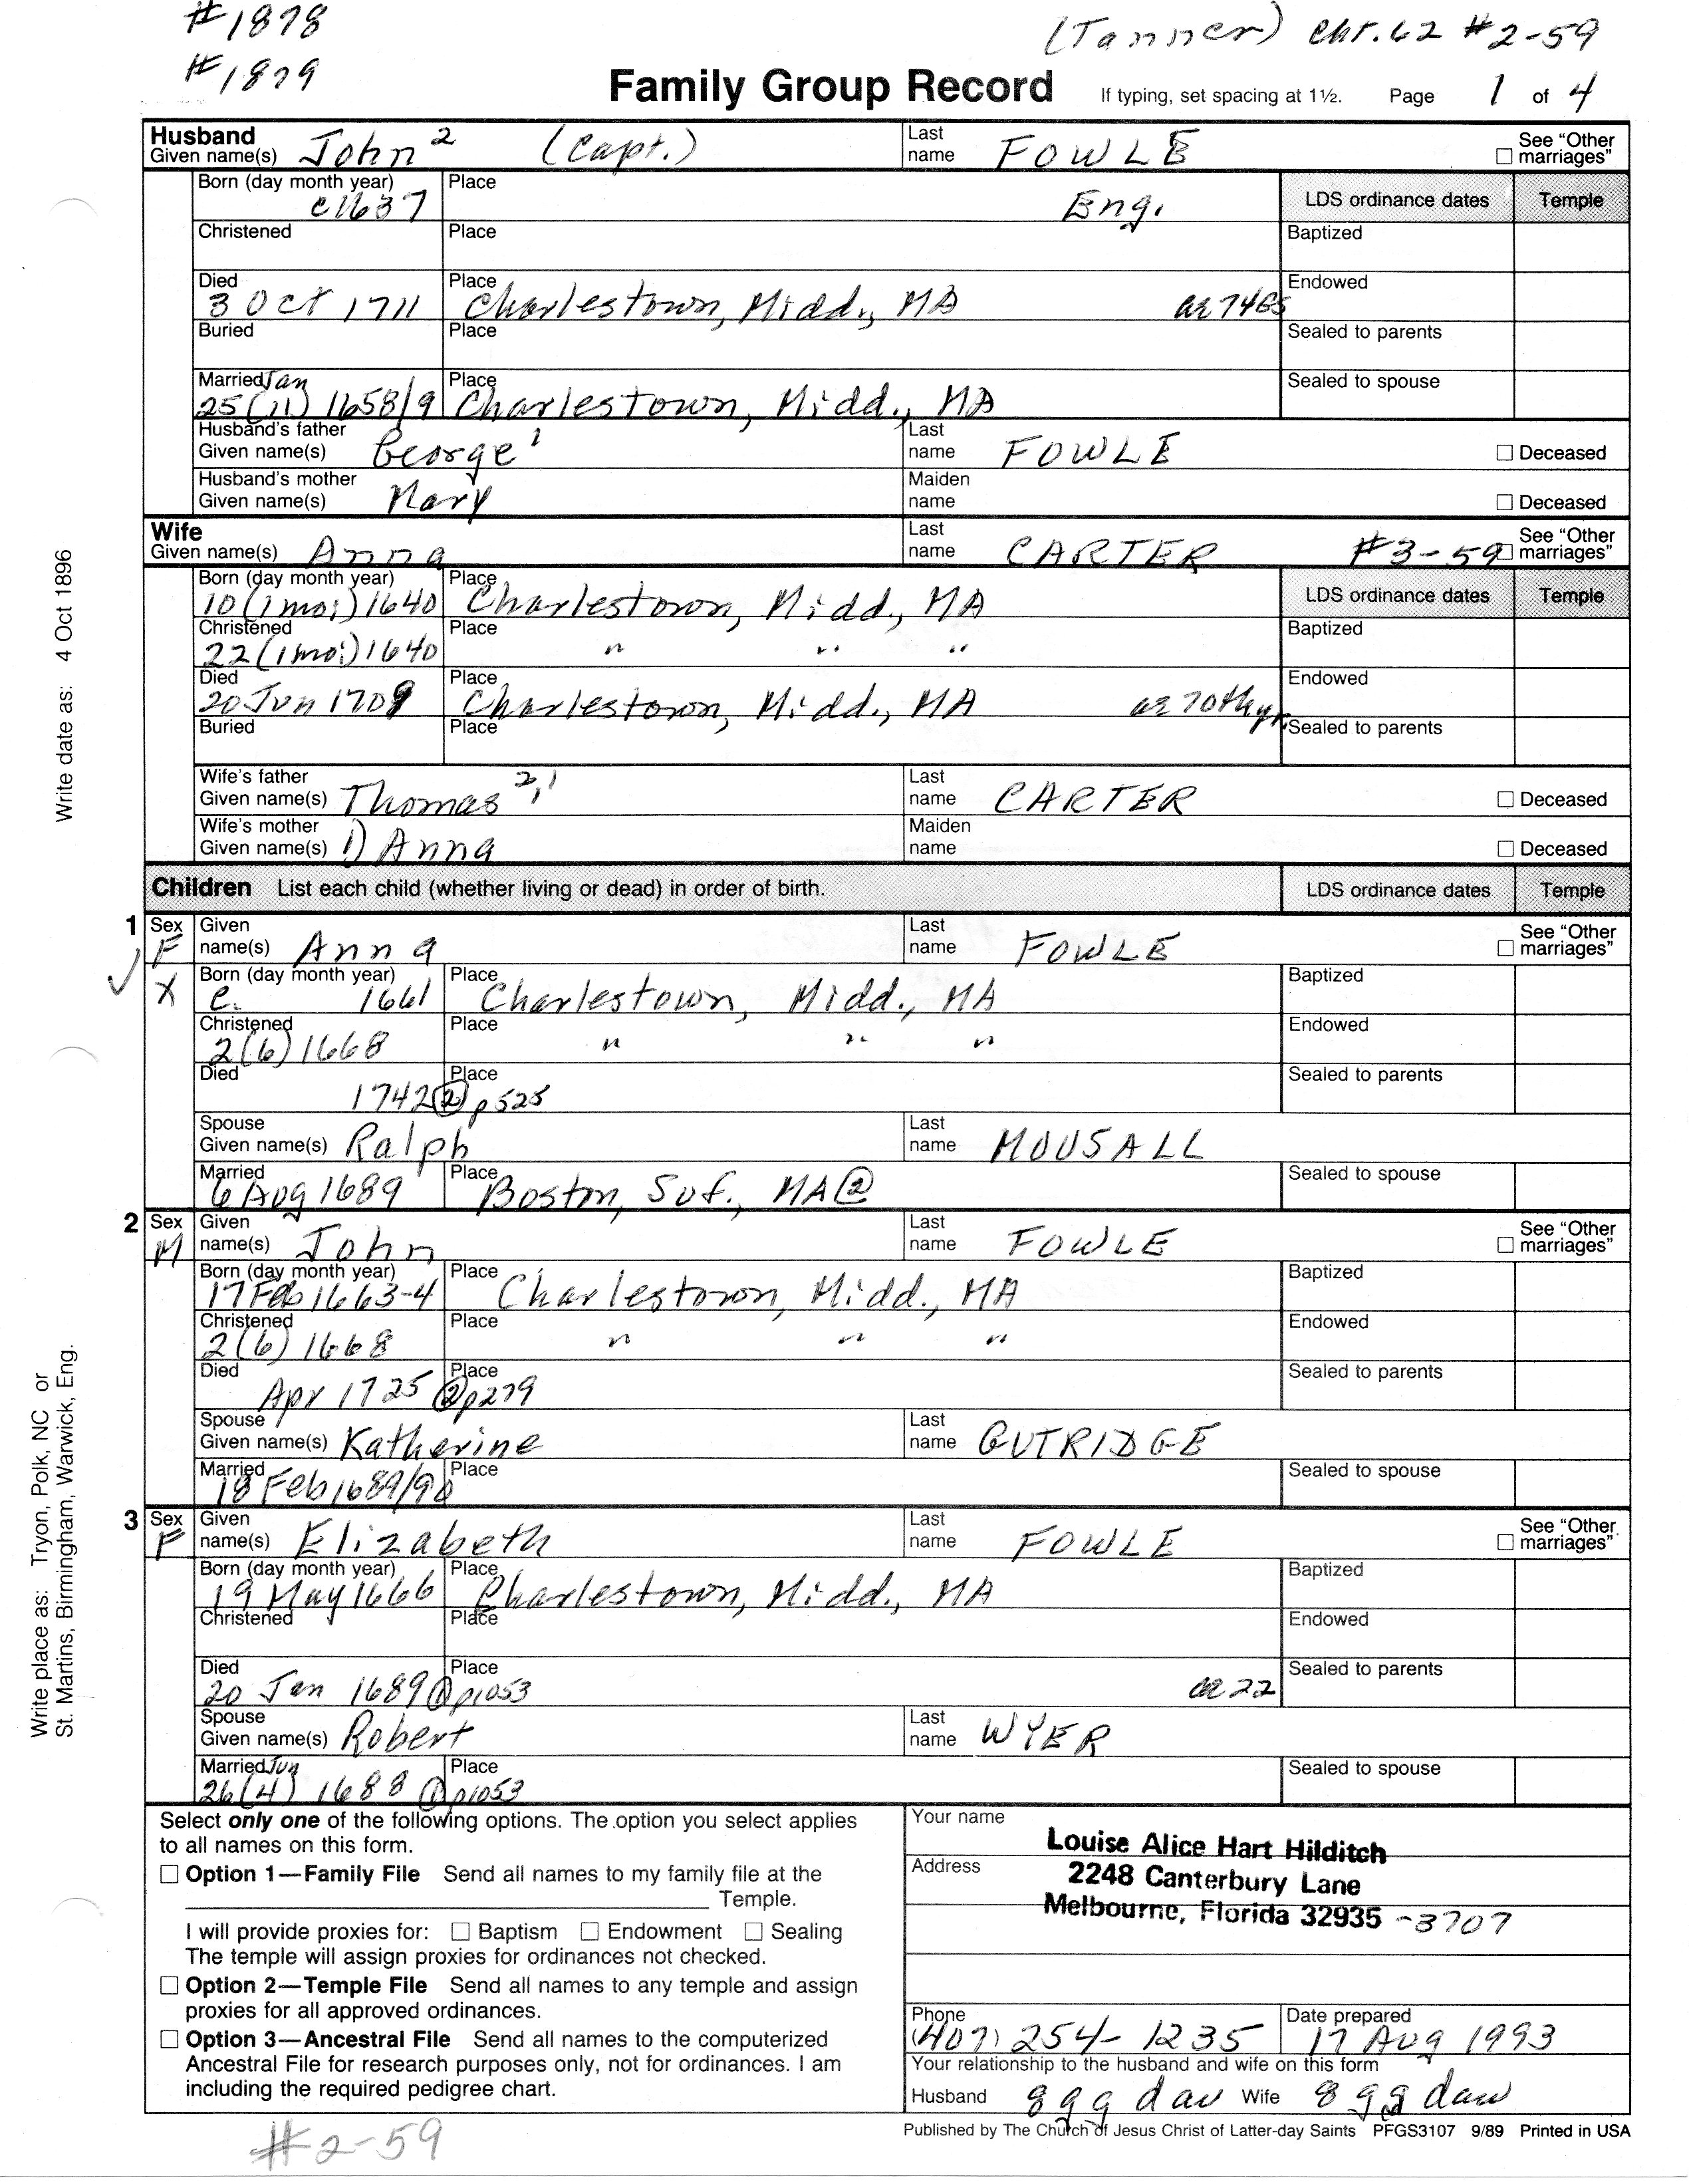 #1878
(Tanner) Cht. 62 #2-59
#1879
Family Group Record If typing, set spacing at 1½. Page 1 of 4
Husband
Given name(s) John 2 (Capt.) Last name FOWLE See "Other marriages"
Born (day month year) c1637 Place Eng. LDS ordinance dates Temple
Christened Place Baptized
Died 3 Oct 1711 Place Charlestown, Midd., MA ae 74 Endowed
Buried Place Sealed to parents
Married Jan 25 (11) 1658/9 Place Charlestown, Midd., MA Sealed to spouse
Husband's father Given name(s) George 1 Last name FOWLE Deceased
Husband's mother Given name(s) Mary Maiden name Deceased
Wife
Given name(s) Anna Last name CARTER #3-59 See "Other marriages"
Born (day month year) 10 (1 mo:) 1640 Place Charlestown, Midd., MA LDS ordinance dates Temple
Christened 22 (1 mo:) 1640 Place " " " Baptized
Died 20 Jun 1709 Place Charlestown, Midd., MA ae 70th yr. Endowed
Buried Place Sealed to parents
Wife's father Given name(s) Thomas 2,1 Last name CARTER Deceased
Wife's mother Given name(s) 1) Anna Maiden name Deceased
Children List each child (whether living or dead) in order of birth. LDS ordinance dates Temple
1 Sex F Given name(s) Anna Last name FOWLE See "Other marriages"
X Born (day month year) c. 1661 Place Charlestown, Midd., MA Baptized
Christened 2(6) 1668 Place " " " Endowed
Died 1742 ② p525 Place Sealed to parents
Spouse Given name(s) Ralph Last name MOUSALL
Married 6 Aug 1689 Place Boston, Suf., MA ② Sealed to spouse
2 Sex M Given name(s) John Last name FOWLE See "Other marriages"
Born (day month year) 17 Feb 1663-4 Place Charlestown, Midd., MA Baptized
Christened 2(6) 1668 Place " " " Endowed
Died Apr 1725 ② p279 Place Sealed to parents
Spouse Given name(s) Katherine Last name GUTRIDGE
Married 18 Feb 1689/90 Place Sealed to spouse
3 Sex F Given name(s) Elizabeth Last name FOWLE See "Other marriages"
Born (day month year) 19 May 1666 Place Charlestown, Midd., MA Baptized
Christened Place Endowed
Died 20 Jan 1689 ① p1053 Place ae 22 Sealed to parents
Spouse Given name(s) Robert Last name WYER
Married Jun 26(4) 1688 ① p1053 Place Sealed to spouse
Write date as: 4 Oct 1896
Write place as: Tryon, Polk, NC or
St. Martins, Birmingham, Warwick, Eng.
Select only one of the following options. The option you select applies
to all names on this form.
Option 1—Family File Send all names to my family file at the
Temple.
I will provide proxies for: Baptism Endowment Sealing
The temple will assign proxies for ordinances not checked.
Option 2—Temple File Send all names to any temple and assign
proxies for all approved ordinances.
Option 3—Ancestral File Send all names to the computerized
Ancestral File for research purposes only, not for ordinances. I am
including the required pedigree chart.
Your name Louise Alice Hart Hilditch
Address 2248 Canterbury Lane
Melbourne, Florida 32935 -3707
Phone (407) 254-1235 Date prepared 17 Aug 1993
Your relationship to the husband and wife on this form
Husband 8 gg dau Wife 8 gg dau
Published by The Church of Jesus Christ of Latter-day Saints PFGS3107 9/89 Printed in USA
#2-59